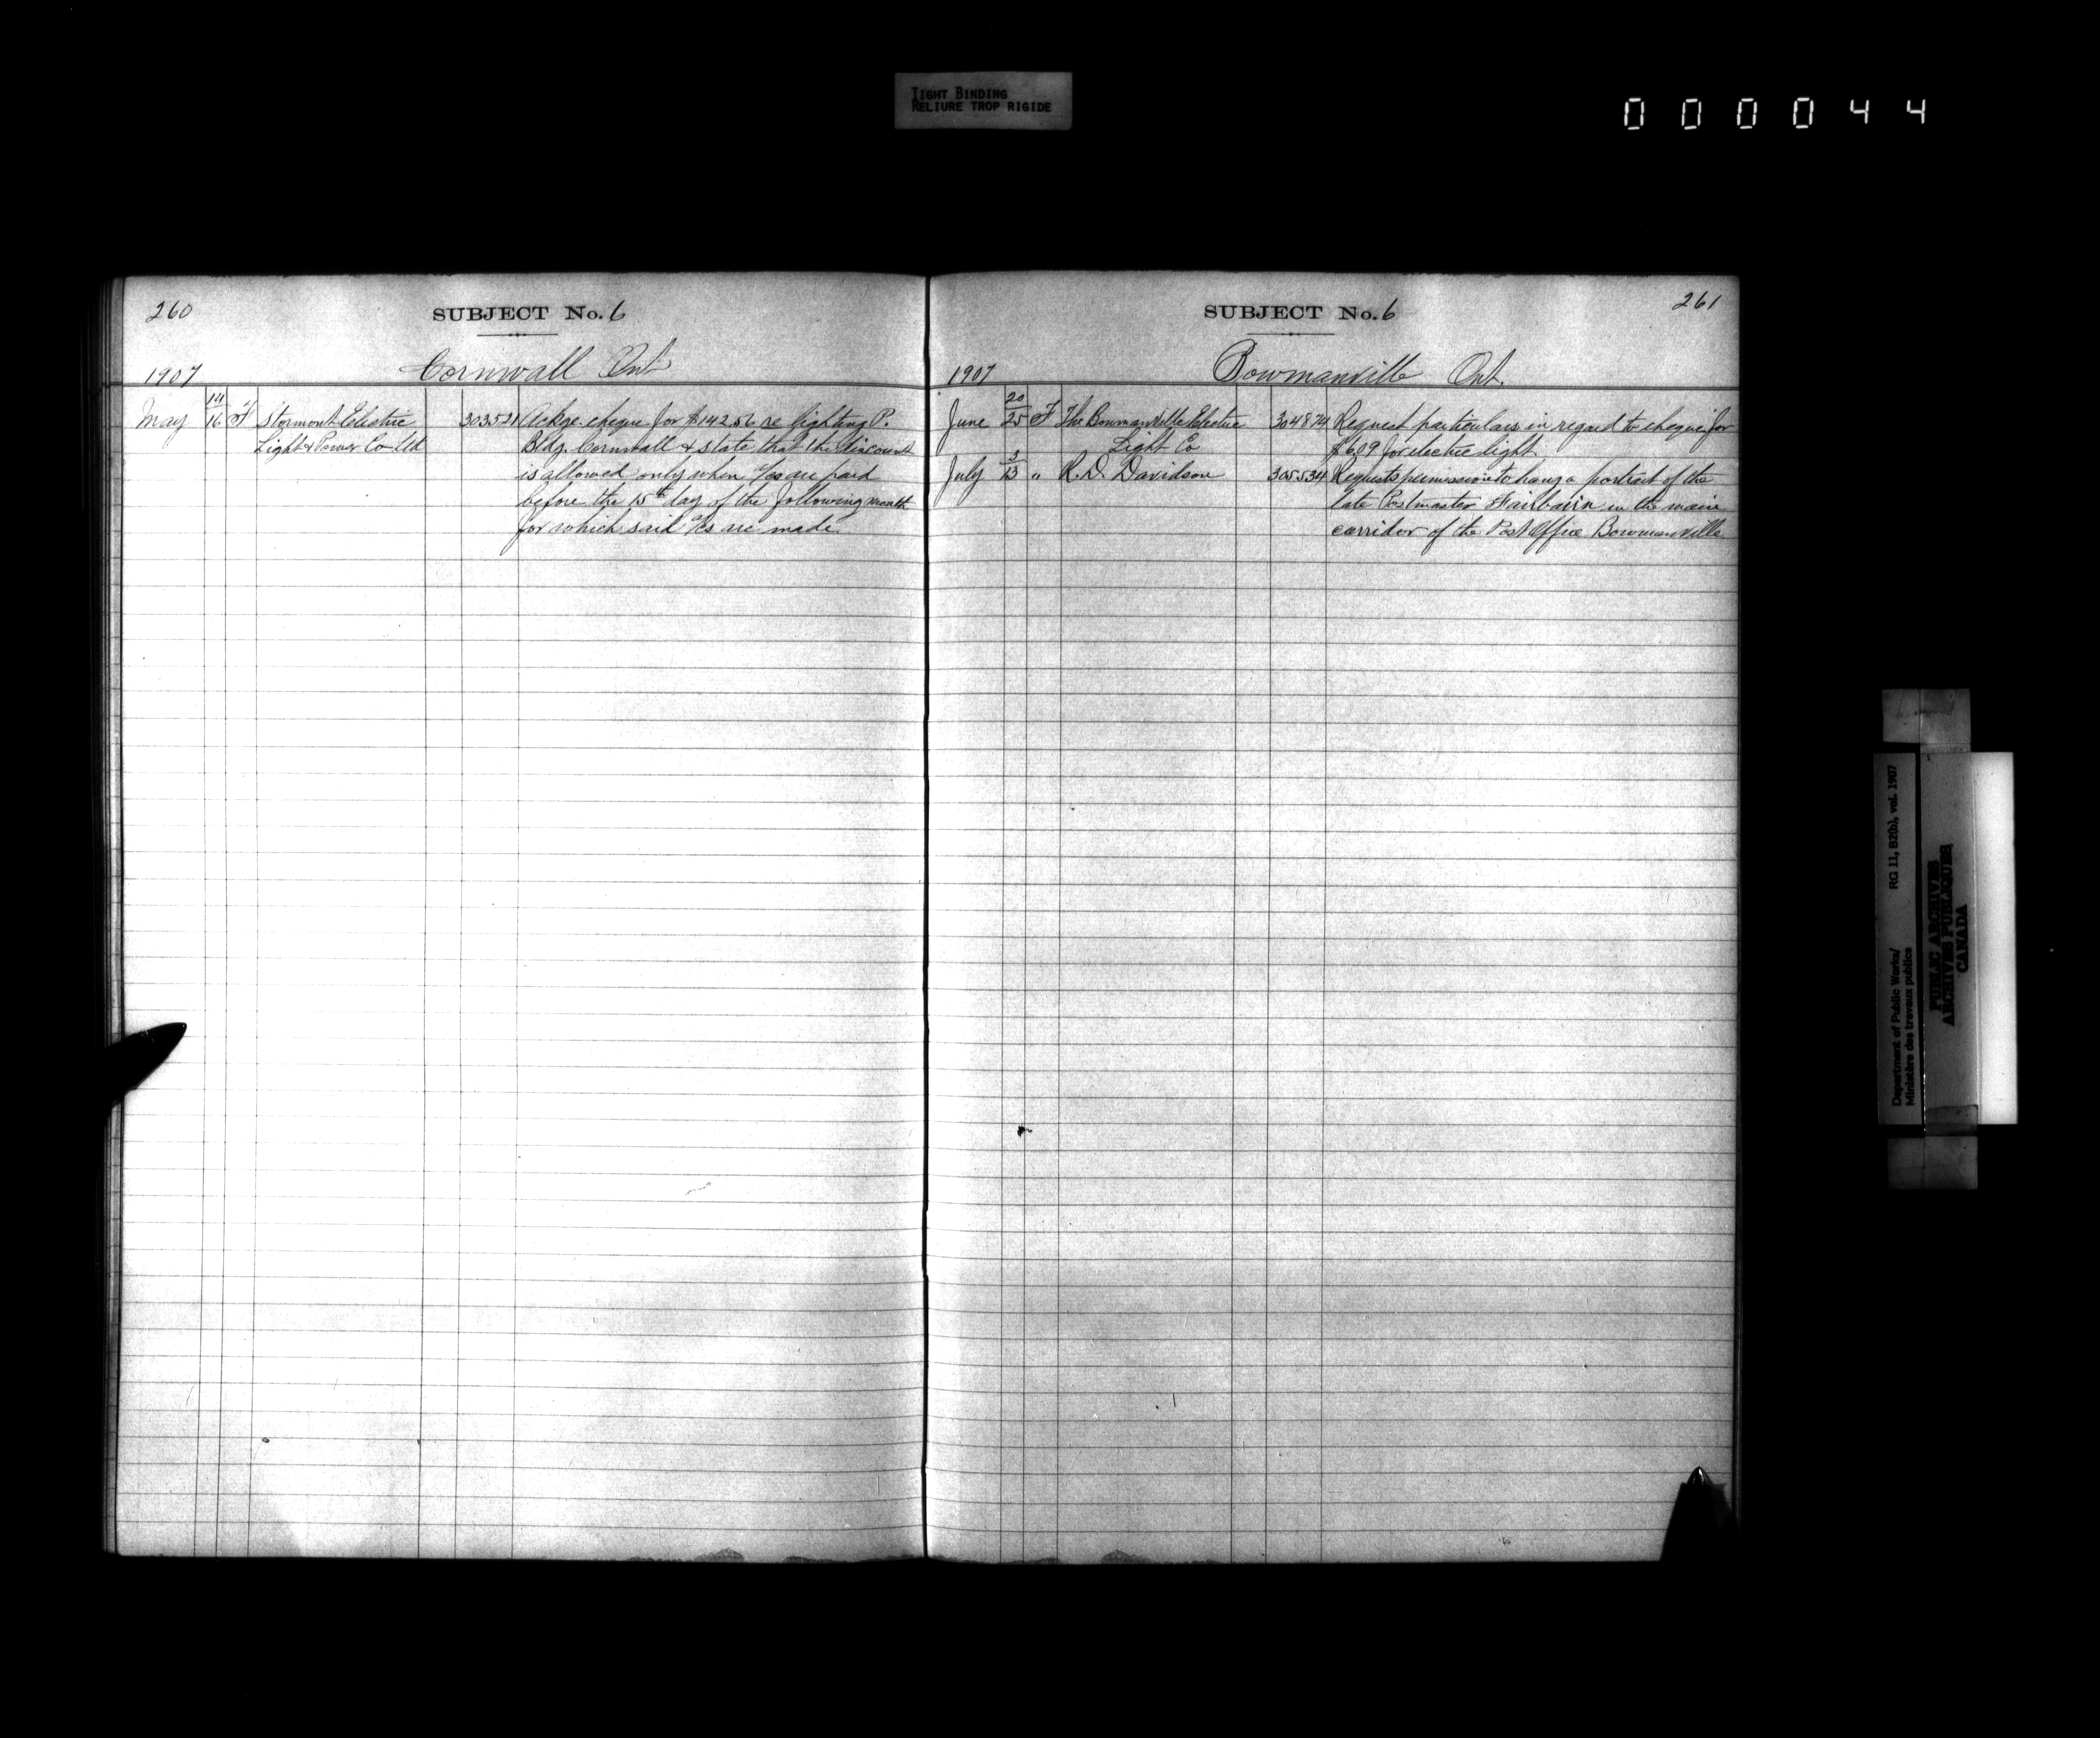 TIGHT BINDING
RELIURE TROP RIGIDE
000044
260
SUBJECT No. 6
1907
Cornwall Ont
May 14/16 F Stormont Electric 303521 Ackge. cheque for $142.56 re lighting P.
Light & Power Co Ltd Bldg. Cornwall & state that the discount
is allowed only when a/cs are paid
before the 15th day of the following month
for which said a/cs are made.
SUBJECT No. 6
261
1907
Bowmanville Ont.
June 20/25 F The Bowmanville Electric 304874 Request particulars in regard to cheque for
Light Co $6.09 for electric light.
July 3/13 " R. D. Davidson 305534 Requests permission to hang a portrait of the
late Postmaster Fairbairn in the main
corridor of the Post Office Bowmanville.
Department of Public Works/
Ministère des travaux publics
RG 11, B2(b), vol. 1907
PUBLIC ARCHIVES
ARCHIVES PUBLIQUES
CANADA